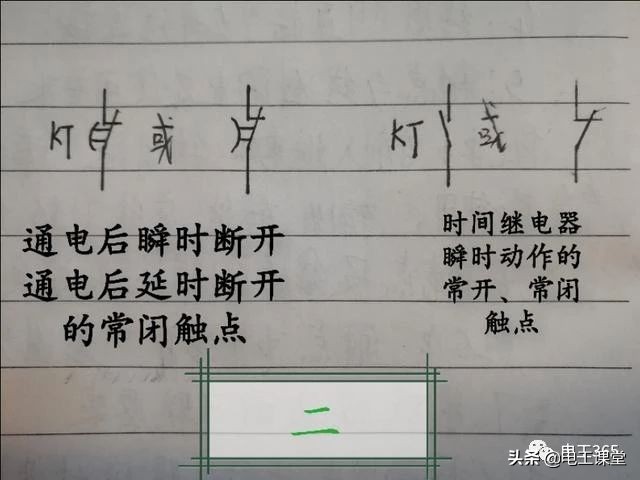 KT 或
KT 或
通电后瞬时断开
通电后延时断开
的常闭触点
时间继电器
瞬时动作的
常开、常闭
触点
二
电王365
头条@电工课堂